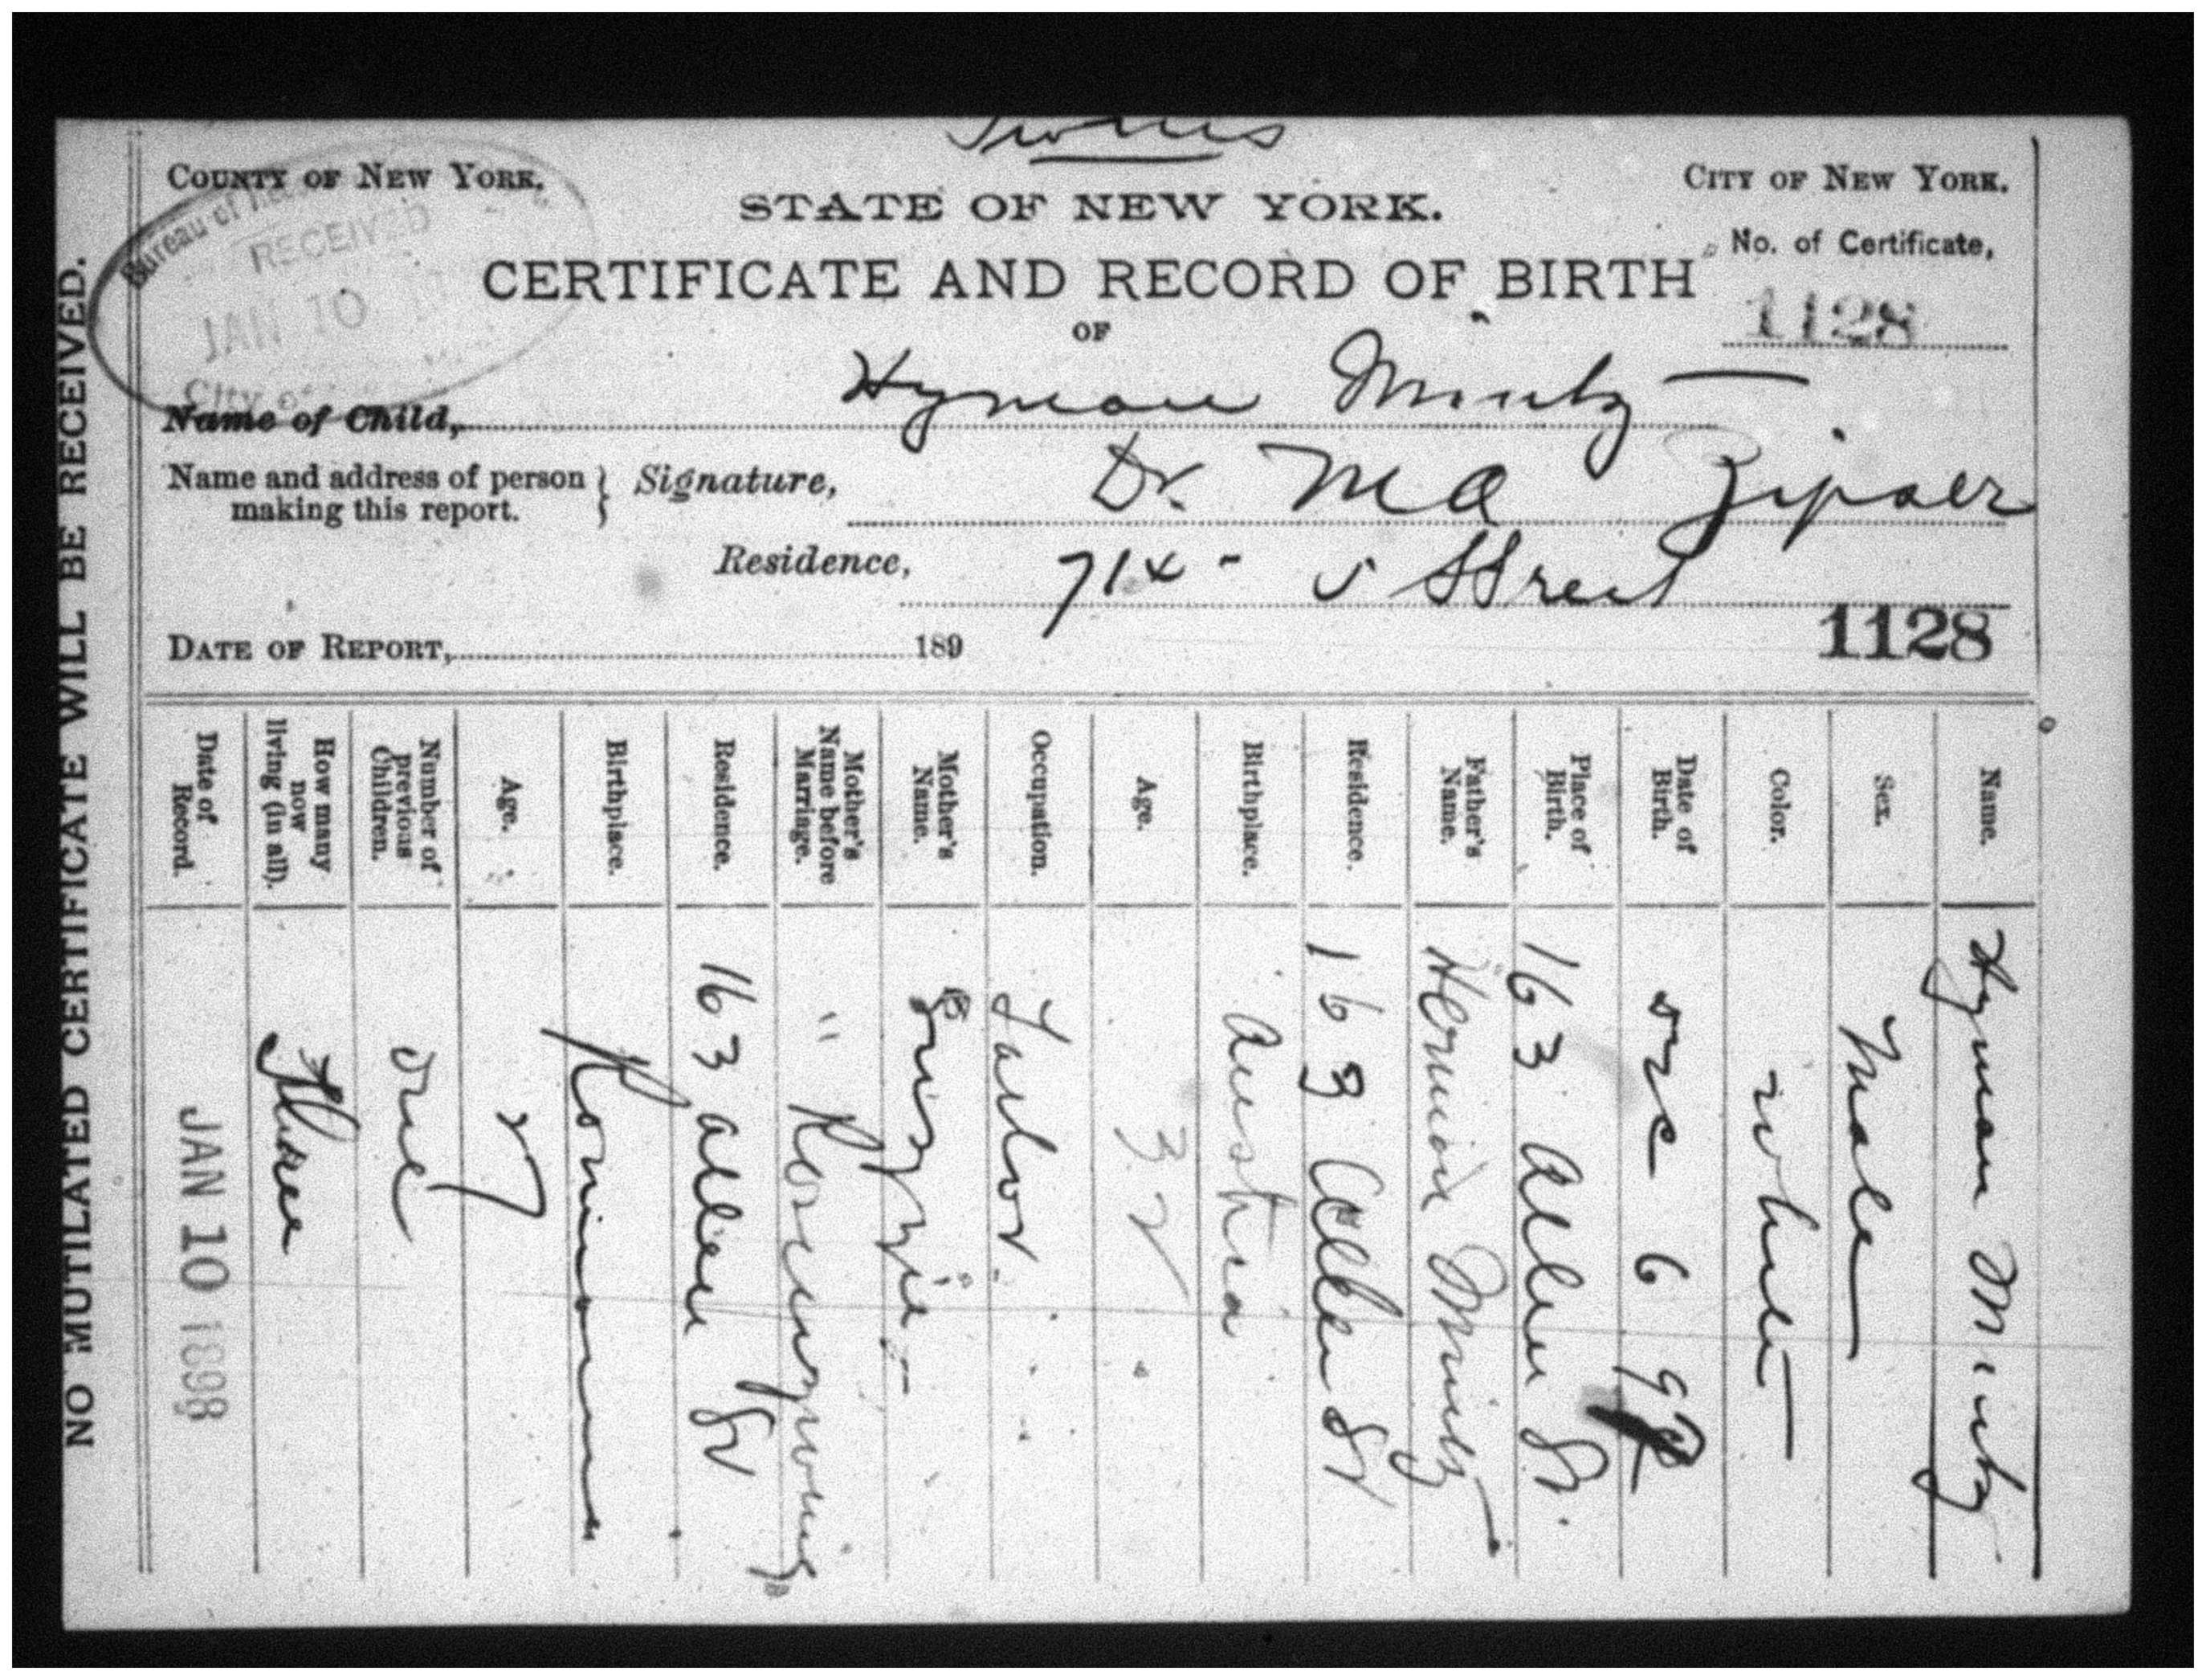 Twins
COUNTY OF NEW YORK.
CITY OF NEW YORK.
STATE OF NEW YORK.
No. of Certificate,
CERTIFICATE AND RECORD OF BIRTH
1128
OF
Bureau of
RECEIVED
JAN 10
City of
Name of Child, Hyman Mintz
Name and address of person making this report. } Signature, Dr. M A Zipser
Residence, 714 - 5 Street
DATE OF REPORT, 189
1128
NO MUTILATED CERTIFICATE WILL BE RECEIVED.
Name. Hyman Mintz
Sex. Male
Color. white
Date of Birth. 6 97
Place of Birth. 163 Allen St.
Father's Name. Herman Mintz
Residence. 163 Allen St
Birthplace. Austria
Age. 32
Occupation. Tailor.
Mother's Name.
Mother's Name before Marriage. "
Residence. 163 Allen St
Birthplace.
Age. 27
Number of previous Children. one
How many now living (in all). Three
Date of Record. JAN 10 1898